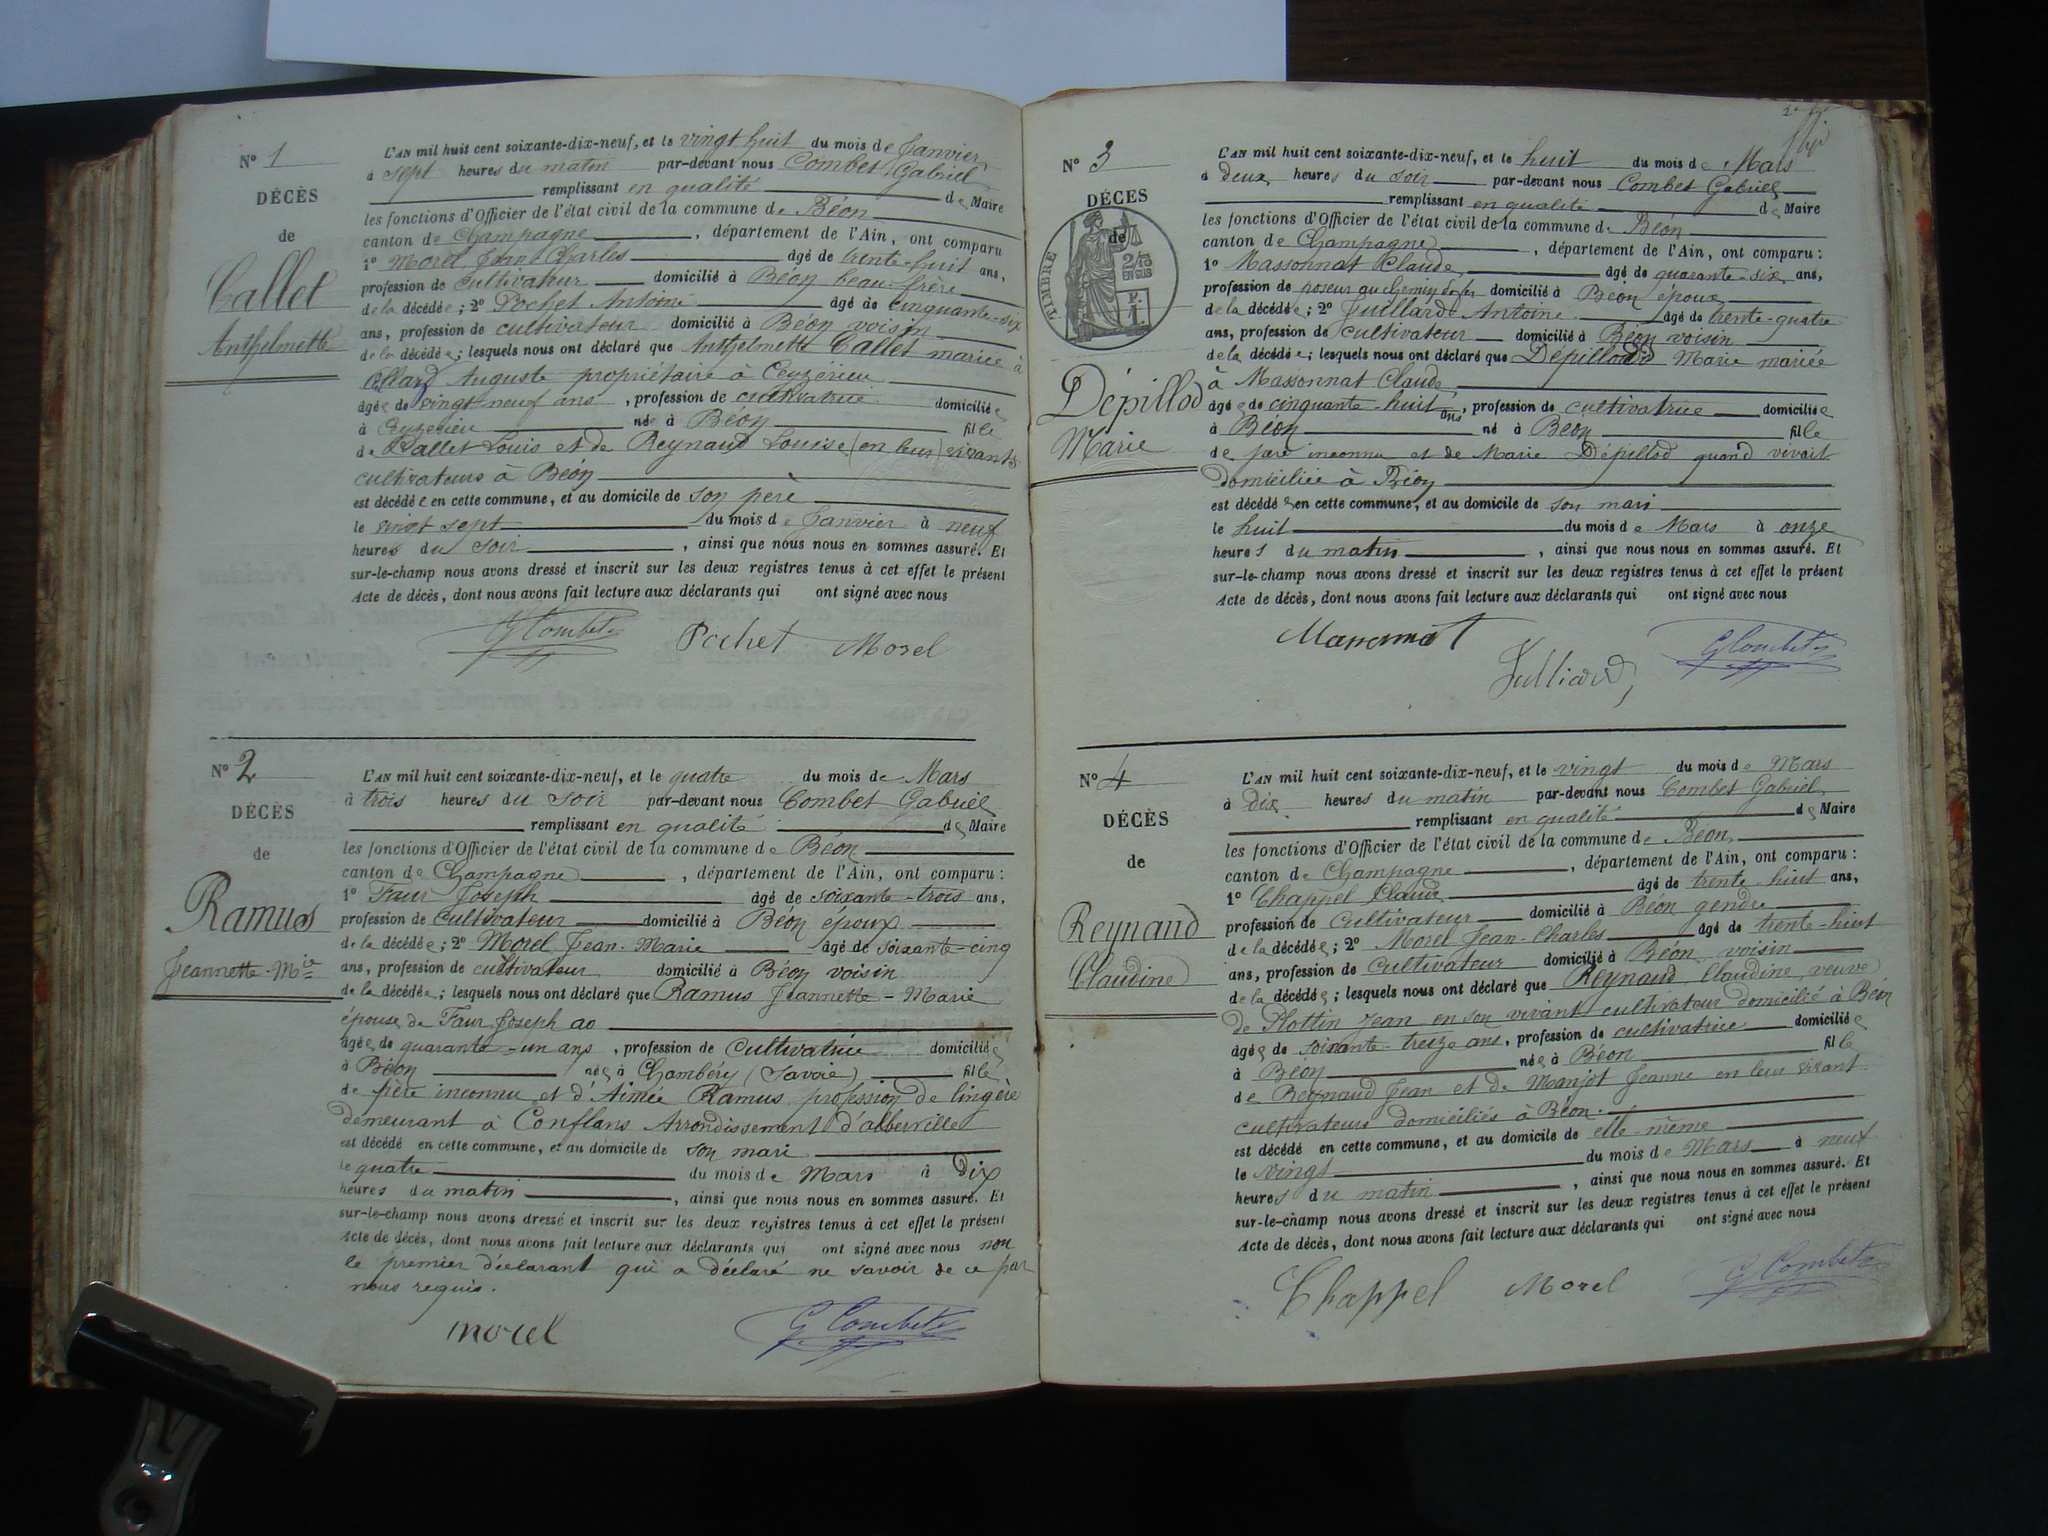 N° 1
DÉCÈS
de
Callet
Anthelmette
L'AN mil huit cent soixante-dix-neuf, et le vingt huit du mois de Janvier
à sept heures du matin par-devant nous Combet Gabriel
remplissant en qualité de Maire
les fonctions d'Officier de l'état civil de la commune de Béon
canton de Champagne, département de l'Ain, ont comparu
1° Morel Jean Charles âgé de trente-huit ans,
profession de cultivateur domicilié à Béon beau-frère
de la décédée; 2° Pochet Antoine âgé de cinquante-six
ans, profession de cultivateur domicilié à Béon voisin
de la décédée; lesquels nous ont déclaré que Anthelmette Callet mariée à
Auguste propriétaire à Ceyzerieu
âgée de vingt-neuf ans, profession de cultivatrice domiciliée
à Ceyzerieu née à Béon fille
de Callet Louis et de Reynaud Louise (en leur) vivants
cultivateurs à Béon
est décédée en cette commune, et au domicile de son père
le vingt sept du mois de Janvier à neuf
heures du soir, ainsi que nous nous en sommes assuré. Et
sur-le-champ nous avons dressé et inscrit sur les deux registres tenus à cet effet le présent
Acte de décès, dont nous avons fait lecture aux déclarants qui ont signé avec nous
G Combet Pochet Morel
N° 2
DÉCÈS
de
Ramus
Jeannette-Mie
L'AN mil huit cent soixante-dix-neuf, et le quatre du mois de Mars
à trois heures du soir par-devant nous Combet Gabriel
remplissant en qualité de Maire
les fonctions d'Officier de l'état civil de la commune de Béon
canton de Champagne, département de l'Ain, ont comparu :
1° Faur Joseph âgé de soixante-trois ans,
profession de cultivateur domicilié à Béon époux
de la décédée; 2° Morel Jean-Marie âgé de soixante-cinq
ans, profession de cultivateur domicilié à Béon voisin
de la décédée; lesquels nous ont déclaré que Ramus Jeannette-Marie
épouse de Faur Joseph
âgée de quarante-un ans, profession de cultivatrice domiciliée
à Béon née à Chambéry (Savoie) fille
de père inconnu et d'Aimée Ramus profession de lingère
demeurant à Conflans Arrondissement d'alberville
est décédé en cette commune, et au domicile de son mari
le quatre du mois de Mars à dix
heures du matin, ainsi que nous nous en sommes assuré. Et
sur-le-champ nous avons dressé et inscrit sur les deux registres tenus à cet effet le présent
Acte de décès, dont nous avons fait lecture aux déclarants qui ont signé avec nous non
le premier déclarant qui a déclaré ne savoir de ce par
nous requis.
morel G Combet
N° 3
DÉCÈS
de
TIMBRE
2/10
EN SUS
Dépillod
Marie
L'AN mil huit cent soixante-dix-neuf, et le huit du mois de Mars
à deux heures du soir par-devant nous Combet Gabriel
remplissant en qualité de Maire
les fonctions d'Officier de l'état civil de la commune de Béon
canton de Champagne, département de l'Ain, ont comparu :
1° Massonnat Claude âgé de quarante-six ans,
profession de poseur au chemin de fer domicilié à Béon époux
de la décédée; 2° Juillard Antoine âgé de trente-quatre
ans, profession de cultivateur domicilié à Béon voisin
de la décédée; lesquels nous ont déclaré que Dépillod Marie mariée
à Massonnat Claude
âgée de cinquante-huit ans, profession de cultivatrice domiciliée
à Béon né à Béon fille
de père inconnu et de Marie Dépillod quand vivait
domiciliée à Béon
est décédée en cette commune, et au domicile de son mari
le huit du mois de Mars à onze
heures du matin, ainsi que nous nous en sommes assuré. Et
sur-le-champ nous avons dressé et inscrit sur les deux registres tenus à cet effet le présent
Acte de décès, dont nous avons fait lecture aux déclarants qui ont signé avec nous
Massonnat
Julliard G Combet
N° 4
DÉCÈS
de
Reynaud
Claudine
L'AN mil huit cent soixante-dix-neuf, et le vingt du mois de Mars
à dix heures du matin par-devant nous Combet Gabriel
remplissant en qualité de Maire
les fonctions d'Officier de l'état civil de la commune de Béon
canton de Champagne, département de l'Ain, ont comparu :
1° Chappel Claude âgé de trente-huit ans,
profession de cultivateur domicilié à Béon gendre
de la décédée; 2° Morel Jean-Charles âgé de trente-huit
ans, profession de cultivateur domicilié à Béon voisin
de la décédée; lesquels nous ont déclaré que Reynaud Claudine veuve
de Plottin Jean en son vivant cultivateur domicilié à Béon
âgée de soixante-treize ans, profession de cultivatrice domiciliée
à Béon née à Béon fille
de Reynaud Jean et de Manjot Jeanne en leur vivant
cultivateurs domiciliés à Béon.
est décédé en cette commune, et au domicile de elle-même
le vingt du mois de Mars à neuf
heures du matin, ainsi que nous nous en sommes assuré. Et
sur-le-champ nous avons dressé et inscrit sur les deux registres tenus à cet effet le présent
Acte de décès, dont nous avons fait lecture aux déclarants qui ont signé avec nous
Chappel Morel G Combet